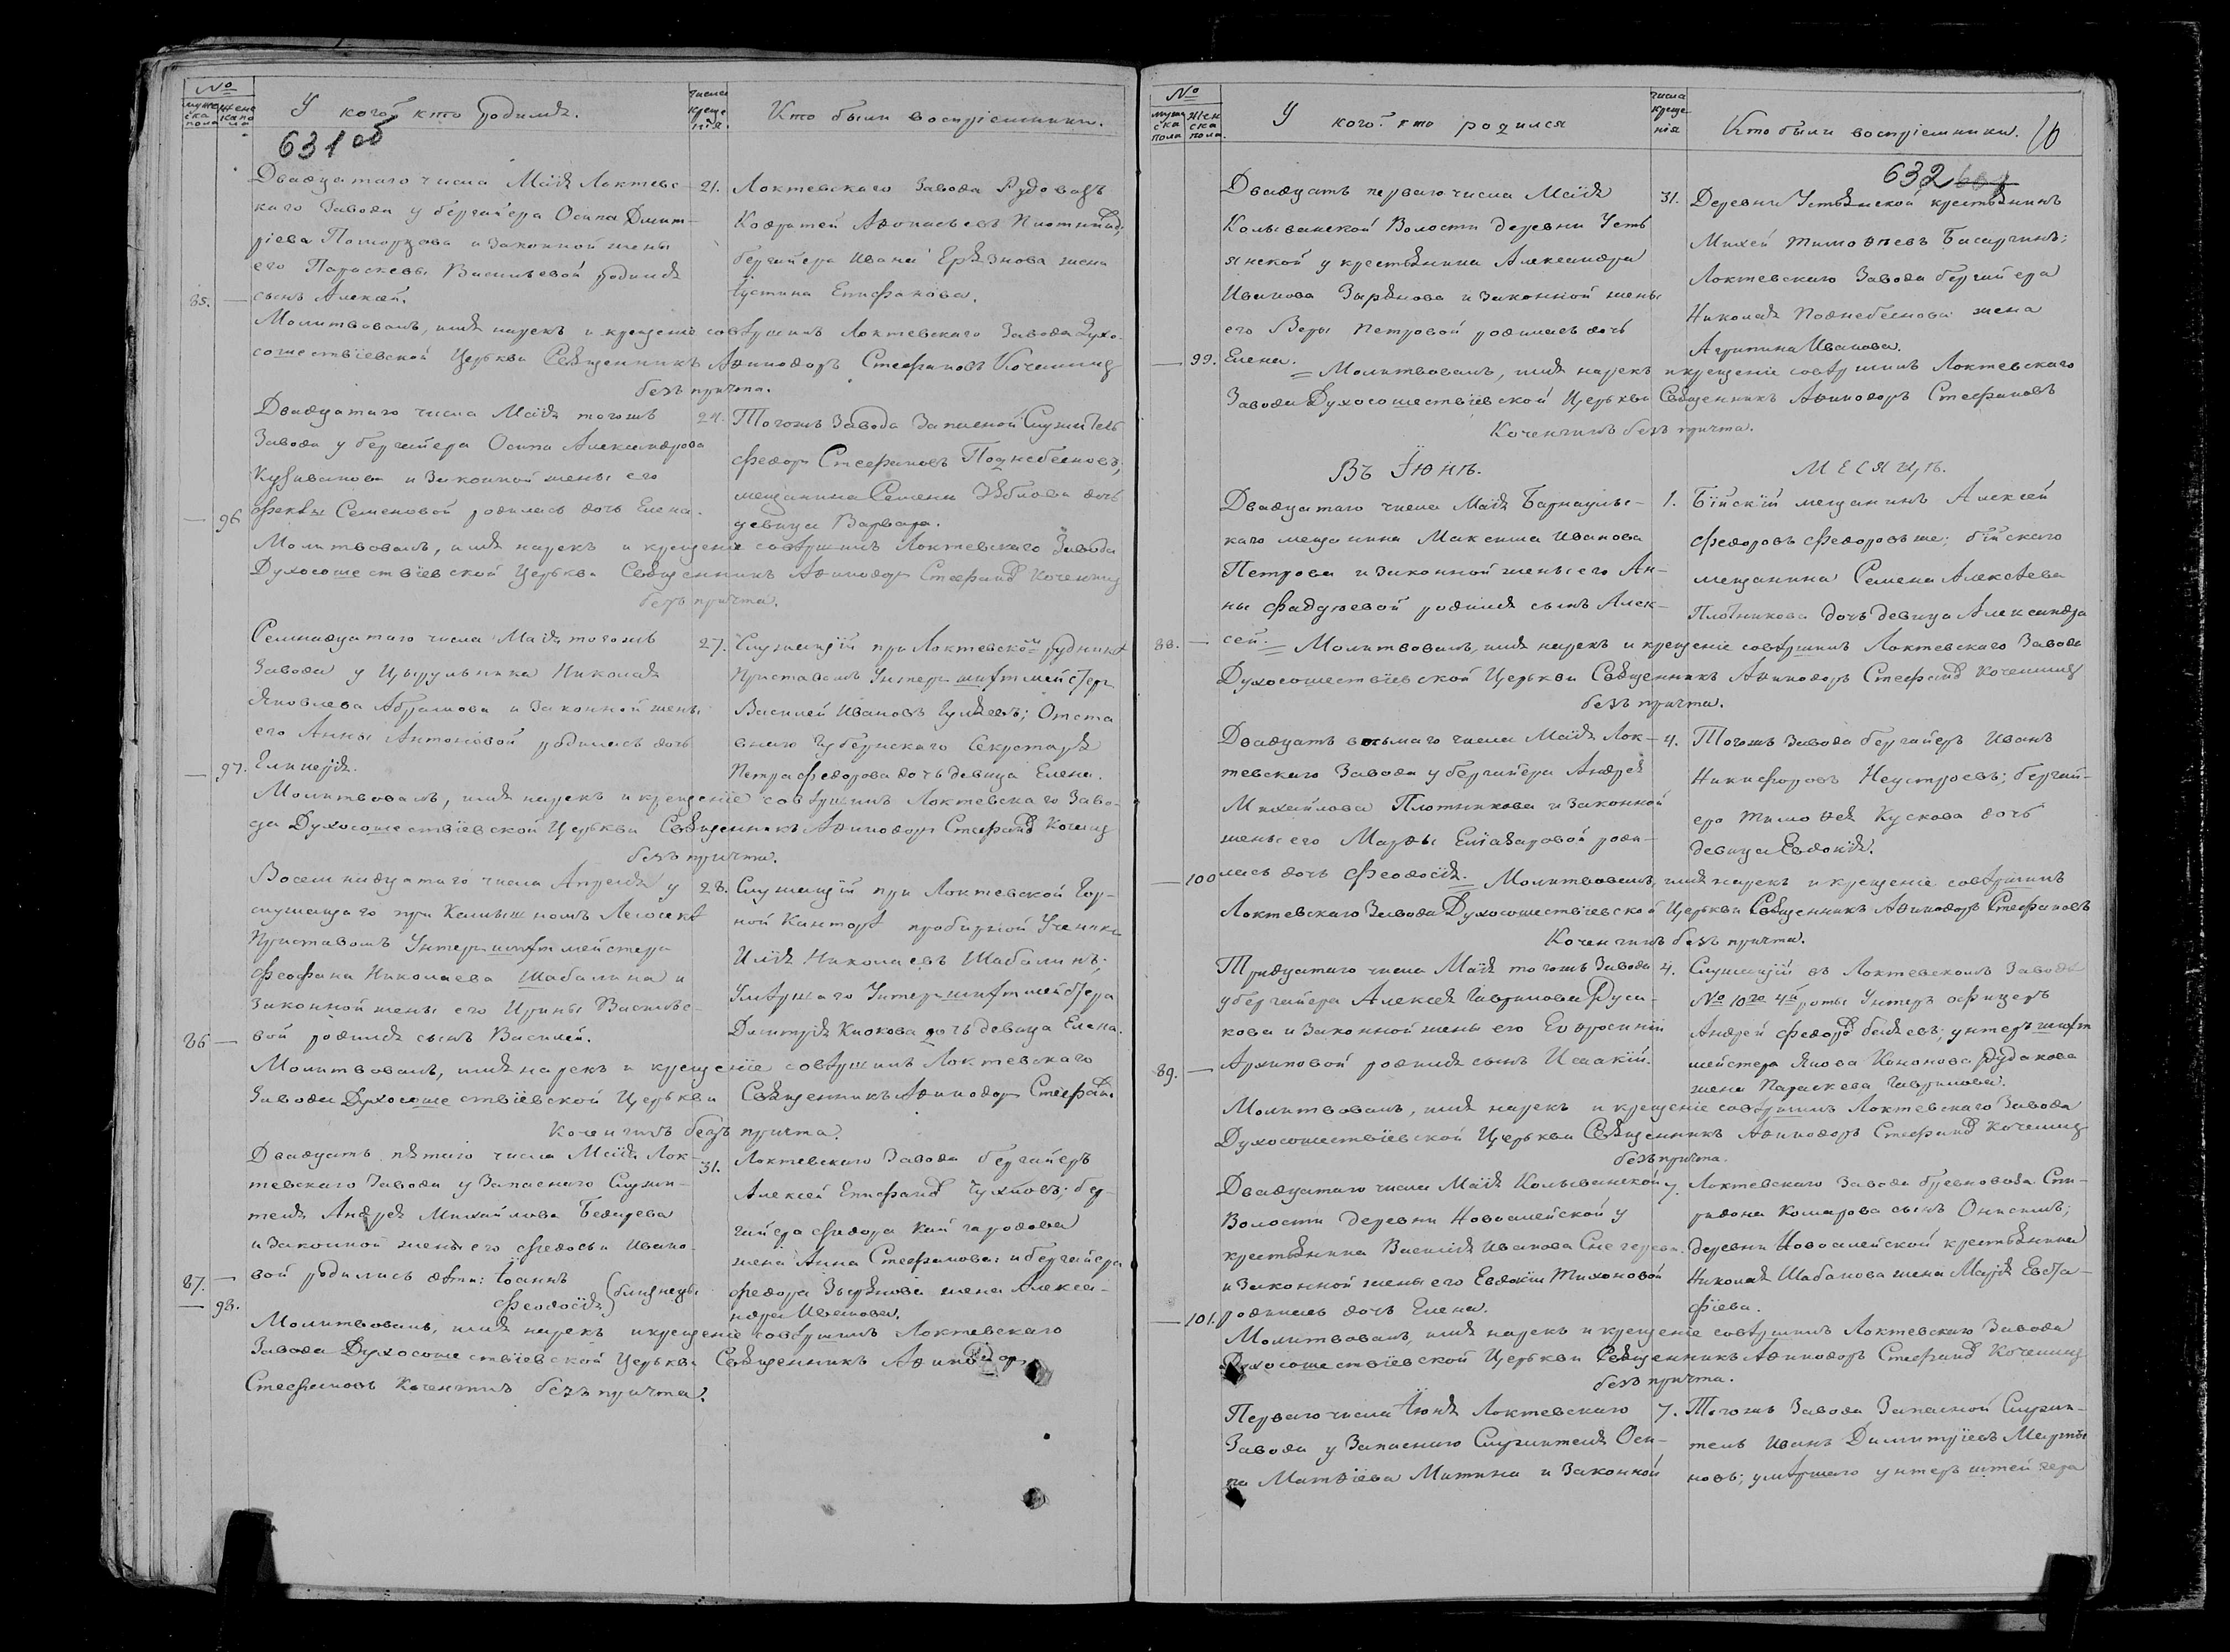 №
муже ска пола
жене ска пола
У кого кто родился.
числа креще нія.
Кто были воспріемники.
631об
Двадцатаго числа Маія Локтевс-
каго Завода у бергайера Осипа Дмит-
ріева Поморцова и законной жены
его Параскевы Васильевой родился
85. — сынъ Алексей.
21. Локтевскаго Завода Рудовозъ
Кодратей Афонасьевъ
бергайера Ивана Ерязнова жена
Іустина Епифанова.
Молитвовалъ, имя нарекъ и крещеніе совѣршилъ Локтевскаго Завода Духо-
сошествіевской Церькви Священникъ Афинодоръ Стефановъ Коченгинъ
безъ причта.
Двадцатаго числа Маія тогожъ
Завода у бергайера Осипа Александрова
Кузиванова и законной жены его
— 96 Феклы Семеновой родилась дочь Елена.
24. Тогожъ Завода Запасной Служитель
Федоръ Стефановъ Поднебесновъ;
мещанина Семена Зяблова дочь
девица Варвара.
Молитвовалъ, имя нарекъ и крещеніе совѣршилъ Локтевскаго Завода
Духосошествіевской Церькви Священникъ Афинодоръ Стефановъ Коченгинъ
безъ причта.
Семнадцатаго числа Маія тогожъ
Завода у Цырульника Николая
Яковлева Абрамова и законной жены
его Анны Антоновой родилась дочь
— 97. Гликерія.
27. Служащій при Локтевскомъ рудникѣ
Приставомъ Унтеръ шихтмейстеръ
Василей Ивановъ Гуляевъ; Отста
внаго Губернскаго Секретаря
Петра Федорова дочь девица Елена.
Молитвовалъ, имя нарекъ и крещеніе совѣршилъ Локтевскаго Заво-
да Духосошествіевской Церькви Священникъ Афинодоръ Стефановъ Коченгинъ
безъ причта.
Восемнадцатаго числа Апреля у
служащаго при Камышномъ Лесосекѣ
Приставомъ Унтеръ шихтмейстера
Феофана Николаева Шабалина и
законной жены его Ирины Василье-
86 — вой родился сынъ Василей.
28. Служащій при Локтевской Гор-
ной Канторѣ пробирной Ученикъ
Илія Николаевъ Шабалинъ;
Умѣршаго Унтеръ шихтмейстера
Дмитрія Клюкова дочь девица Елена.
Молитвовалъ, имя нарекъ и крещеніе совѣршилъ Локтевскаго
Завода Духосошествіевской Церькви Священникъ Афинодоръ Стефанъ
Коченгинъ безъ причта.
Двадцать пятаго числа Маія Лок-
тевскаго Завода у Запаснаго Служи-
теля Андрея Михайлова Бедарева
и законной жены его Федосьи Ивано-
87. — вой родились дѣти: Іоаннъ
— 98. Феодосія (близнецы
31. Локтевскаго Завода бергайеръ
Алексей Епифановъ Чухновъ; бер-
гайера Федора Кайгародова
жена Анна Стефанова; и бергайера
Федора Зырянова жена Алекса-
ндра Иванова.
Молитвовалъ, имя нарекъ и крещеніе совѣршилъ Локтевскаго
Завода Духосошествіевской Церькви Священникъ Афинодоръ
Стефановъ Коченгинъ безъ причта.
№
муже ска пола
жен ска пола.
У кого кто родился
числа креще нія
Кто были воспріемники.
632
Двадцать перваго числа Маія
Колыванской Волости деревни Усть
янской у крестьянина Александра
Иванова Зырянова и законной жены
его Веры Петровой родилась дочь
— 99. Елена.
31. Деревни Устьянской крестьянинъ
Михей Тимофеевъ Басаргинъ;
Локтевскаго Завода бергайера
Николая Поднебеснова жена
Агрипина Иванова.
= Молитвовалъ, имя нарекъ и крещеніе совѣршилъ Локтевскаго
Завода Духосошествіевской Церькви Священникъ Афинодоръ Стефановъ
Коченгинъ безъ причта.
Въ Іюнѣ. Месяцѣ.
Двадцатаго числа Маія Барнаульс-
каго мещанина Максима Иванова
Петрова и законной жены его Ан-
ны Фадѣевой родился сынъ Алек-
1. Бійскій мещанинъ Алексей
Федоровъ Федоровъ же; бійскаго
мещанина Семена Алексѣева
Плотникова дочь девица Александра
88. — сей. = Молитвовалъ, имя нарекъ и крещеніе совѣршилъ Локтевскаго Завода
Духосошествіевской Церькви Священникъ Афинодоръ Стефановъ Коченгинъ
безъ причта.
Двадцать восьмаго числа Маія Лок-
тевскаго Завода у бергайера Андрея
Михайлова Плотникова и законной
жены его Марфы Еліазаровой роди-
4. Тогожъ Завода бергайеръ Иванъ
Никифоровъ Неустроевъ; бергай-
ера Тимофея Кускова дочь
девица Евдокія.
— 100 лась дочь Феодосія. = Молитвовалъ, имя нарекъ и крещеніе совѣршилъ
Локтевскаго Завода Духосошествіевской Церькви Священникъ Афинодоръ Стефановъ
Коченгинъ безъ причта.
Тридцатаго числа Маія тогожъ Завода
у бергайера Алексея Гаврилова Руса-
кова и законной жены его Евфросиніи
89. — Архиповой родился сынъ Исаакій.
4. Служащій въ Локтевскомъ Заводѣ
№ 10го 4й роты Унтеръ офицеръ
Андрей Федоровъ Беляевъ; унтеръ шихт
мейстера Якова Кононова Рудакова
жена Параскева Гаврилова.
Молитвовалъ, имя нарекъ и крещеніе совѣршилъ Локтевскаго Завода
Духосошествіевской Церькви Священникъ Афинодоръ Стефановъ Коченгинъ
безъ причта.
Двадцатаго числа Маія Колыванской
Волости деревни Новоалейской у
крестьянина Василія Иванова Снегерева
и законной жены его Евдокіи Тихоновой
— 101. родилась дочь Елена.
7. Локтевскаго Завода бревновоза Спи-
ридона Комарова сынъ Онисимъ;
деревни Новоалейской крестьянина
Николая Шабанова жена Марія Евста-
фіева.
Молитвовалъ, имя нарекъ и крещеніе совѣршилъ Локтевскаго Завода
Духосошествіевской Церькви Священникъ Афинодоръ Стефановъ Коченгинъ
безъ причта.
Перваго числа Іюня Локтевскаго
Завода у Запаснаго Служителя Оси-
па Матфіева Митина и законной
7. Тогожъ Завода Запасной Служи-
тель Иванъ Димитріевъ Марты
новъ; умѣршаго унтеръ штейгера